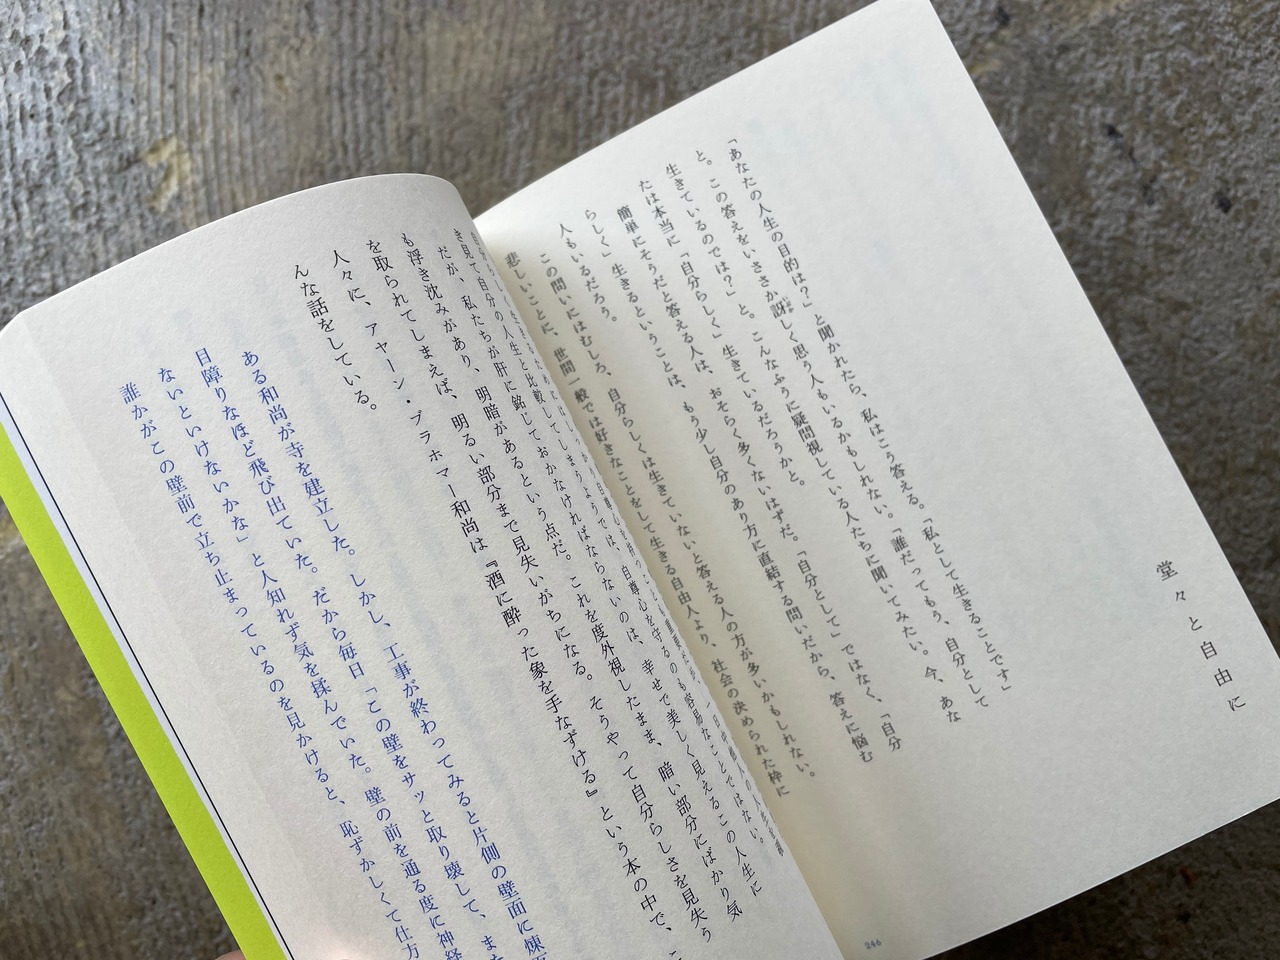 堂々と自由に
「あなたの人生の目的は?」と聞かれたら、私はこう答える。「私として生きることです」
と。この答えをいささか訝しく思う人もいるかもしれない。「誰だってもう、自分として
生きているのでは?」と。こんなふうに疑問視している人たちに聞いてみたい。今、あな
たは本当に「自分らしく」生きているだろうかと。
簡単にそうだと答える人は、おそらく多くないはずだ。「自分として」ではなく、「自分
らしく」生きるということは、もう少し自分のあり方に直結する問いだから、答えに悩む
人もいるだろう。
この問いにはむしろ、自分らしくは生きていないと答える人の方が多いかもしれない。
悲しいことに、世間一般では好きなことをして生きる自由人より、社会の決められた枠に
246
き見て自分の人生と比較してしまうようでは、自尊心を守るのも容易なことではない。
だが、私たちが肝に銘じておかなければならないのは、幸せで美しく見えるこの人生に
も浮き沈みがあり、明暗があるという点だ。これを度外視したまま、暗い部分にばかり気
を取られてしまえば、明るい部分まで見失いがちになる。そうやって自分らしさを見失う
人々に、アヤーン・ブラホマー和尚は『酒に酔った象を手なずける』という本の中で、こ
んな話をしている。
ある和尚が寺を建立した。しかし、工事が終わってみると片側の壁面に煉
目障りなほど飛び出ていた。だから毎日「この壁をサッと取り壊して、また
ないといけないかな」と人知れず気を揉んでいた。壁の前を通る度に神経
誰かがこの壁前で立ち止まっているのを見かけると、恥ずかしくて仕方